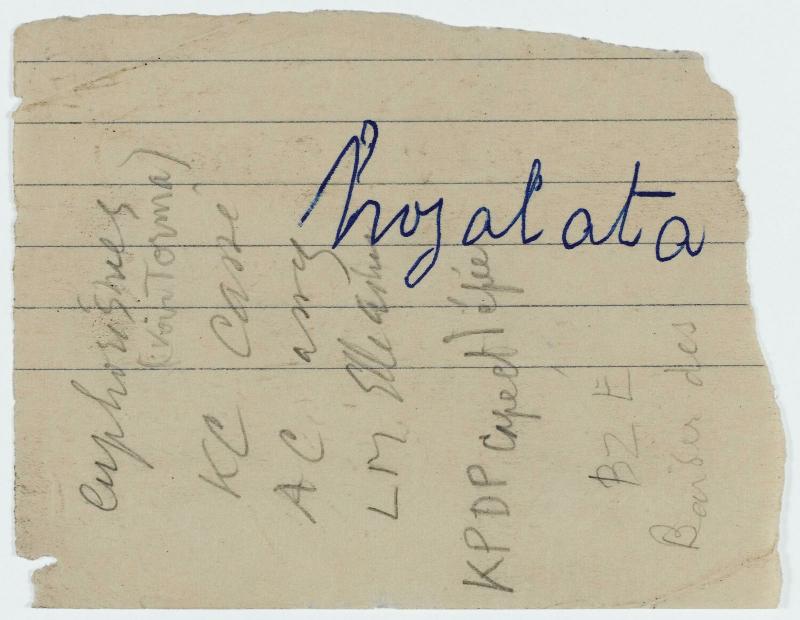 hogalata
euphorismes
(voir Torma)
KC Casse
AC assez
LM Elle aime
KPDP Capet l'épée
BZE
Baiser des